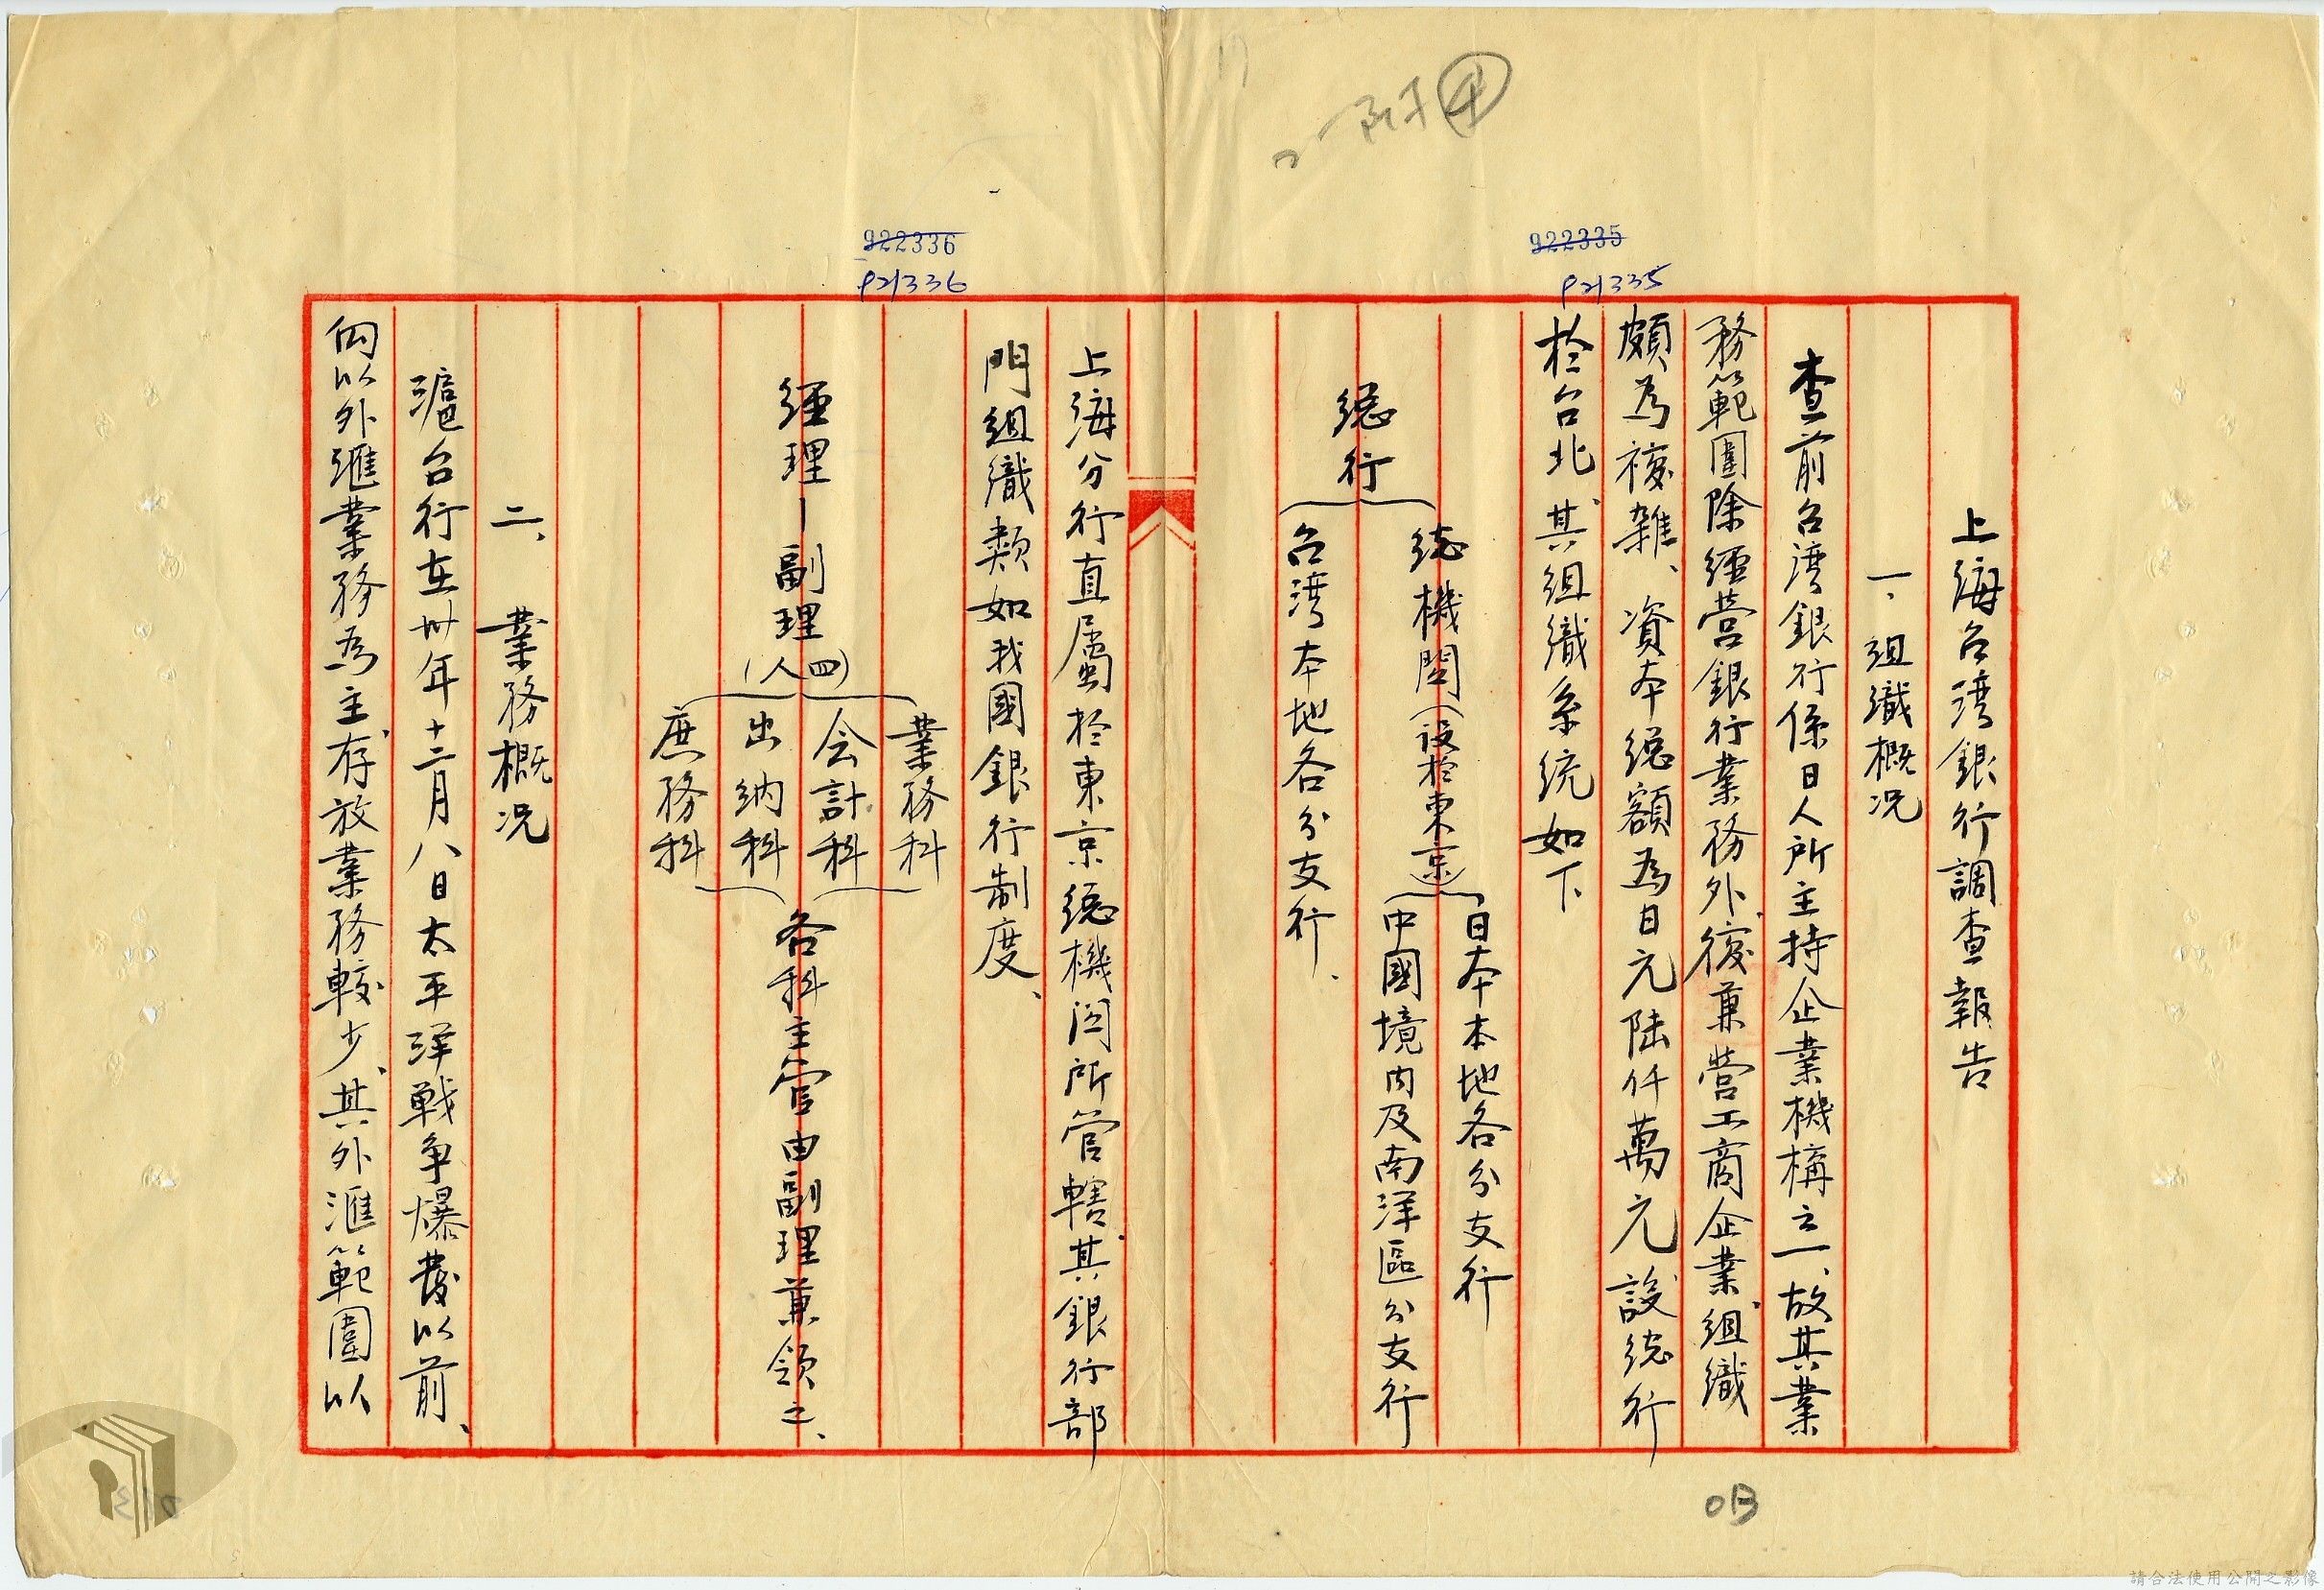 附④
922335
P21335
922336
P21336
上海台湾銀行調查報告
一、組織概况
查前台湾銀行係日人所主持企業機構之一、故其業
務範圍除經营銀行業務外、復兼營工商企業、組織
頗為複雜、資本總額為日元陆仟萬元設總行
於台北、其組織系統如下
總行
總機関(設於東京)
日本本地各分支行
中國境內及南洋區分支行
台湾本地各分支行、
上海分行直屬於東京總機関所管轄、其銀行部
門組織類如我國銀行制度、
經理—副理(四人)
業務科
会計科
出納科
庶務科
各科主官由副理兼領之、
二、業務概况
滬台行在卅年十二月八日太平洋戰争爆發以前、
向以外滙業務為主、存放業務較少、其外滙範圍以
0B
請合法使用公開之影像